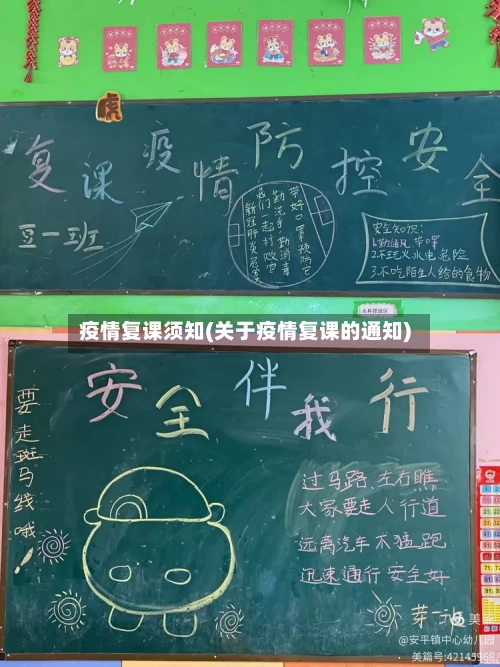 虎
复课疫情防控安全
豆一班
带好口罩预防它
勤洗手 勤消毒
我们一起打败它
新冠肺炎危害大
安全知识:
1.勤通风 带口罩
2.不玩火水电危险
3.不吃陌生人给的食物
疫情复课须知(关于疫情复课的通知)
安全伴我行
要走斑马线哦!
过马路 左右瞧
大家要走人行道
远离汽车不猛跑
迅速通行安全好
@安平镇中心幼儿园
美篇号:42143968